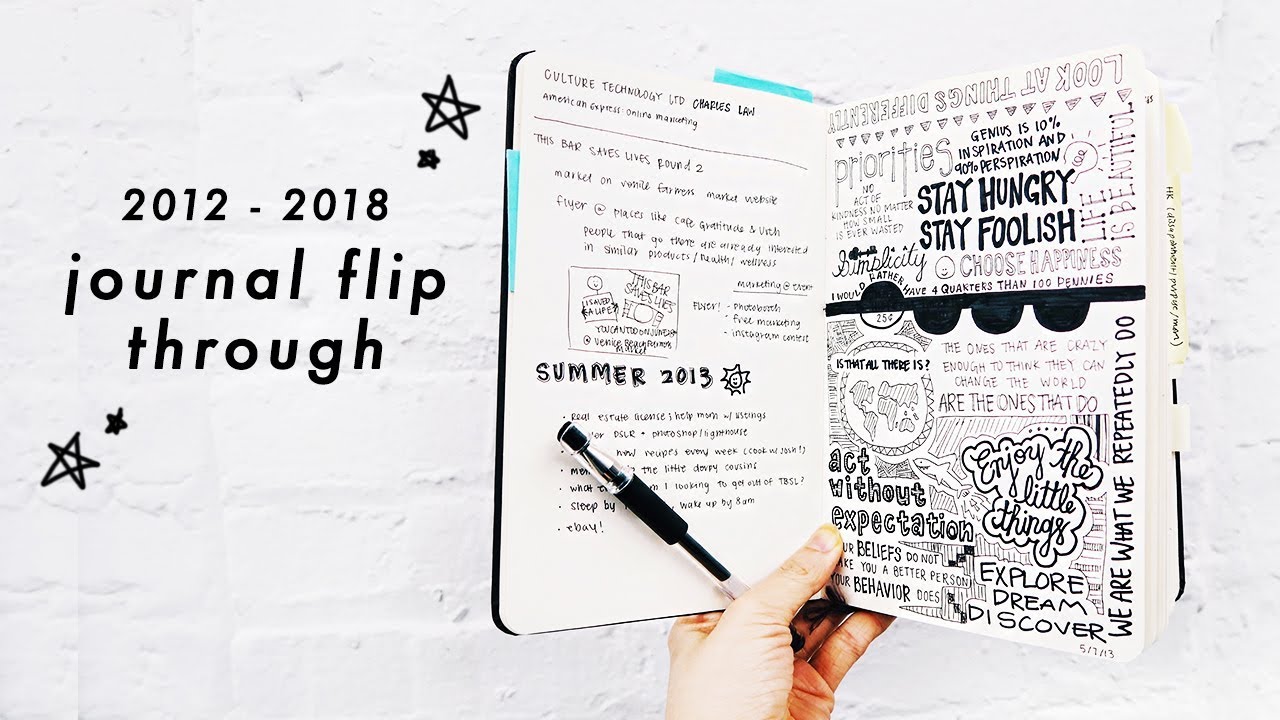 2012 - 2018
journal flip
through
CULTURE TECHNOLOGY LTD CHARLES LAW
American Express: online marketing
THIS BAR SAVES LIVES ROUND 2
market on venice farmers market website
flyer @ places like cafe gratitude & Urth
people that go there are already interested
in similar products/health/wellness
THIS BAR
SAVES LIVES
I SAVED
A LIFE
@ venice beach farmers
market
marketing @ event
flyer!
- photobooth
- free marketing
- instagram contest
SUMMER 2013
• real estate license; help mom w/ listings
DSLR + photoshop/lighthouse
new recipes every week (cook w/ Josh!)
the little dorpy cousins
• what I looking to get out of TBSL?
• sleep by wake up by 8am
• ebay!
LOOK AT THINGS DIFFERENTLY
priorities
GENIUS IS 10%
INSPIRATION AND
90% PERSPIRATION
NO
ACT OF
KINDNESS NO MATTER
HOW SMALL
IS EVER WASTED
STAY HUNGRY
STAY FOOLISH
LIFE
IS BEAUTIFUL
Simplicity
CHOOSE HAPPINESS
I WOULD RATHER HAVE 4 QUARTERS THAN 100 PENNIES
25¢
IS THAT ALL THERE IS?
THE ONES THAT ARE CRAZY
ENOUGH TO THINK THEY CAN
CHANGE THE WORLD
ARE THE ONES THAT DO
WE ARE WHAT WE REPEATEDLY DO
Enjoy the
little
things
act
without
expectation
YOUR BELIEFS DO NOT
MAKE YOU A BETTER PERSON
YOUR BEHAVIOR DOES
EXPLORE
DREAM
DISCOVER
5/7/13